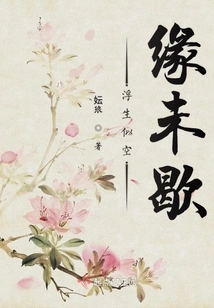 缘未歇
浮生似空
妘琅◎著